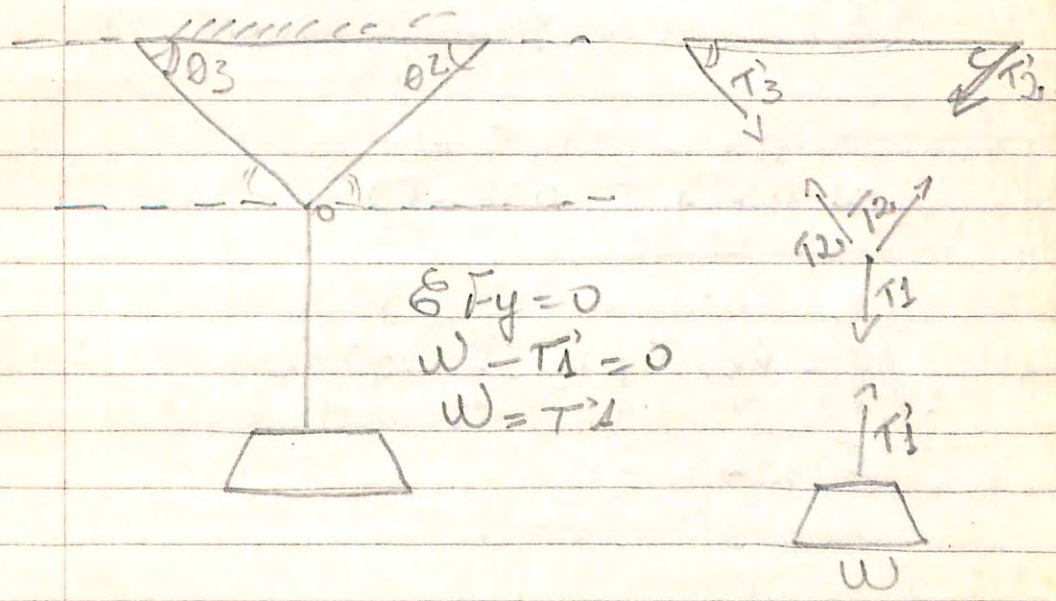 θ3 θ2
T'3 T'2
o
T2 T2
T1
ƐFy=0
W-T'1=0
W=T'1
T'1
W